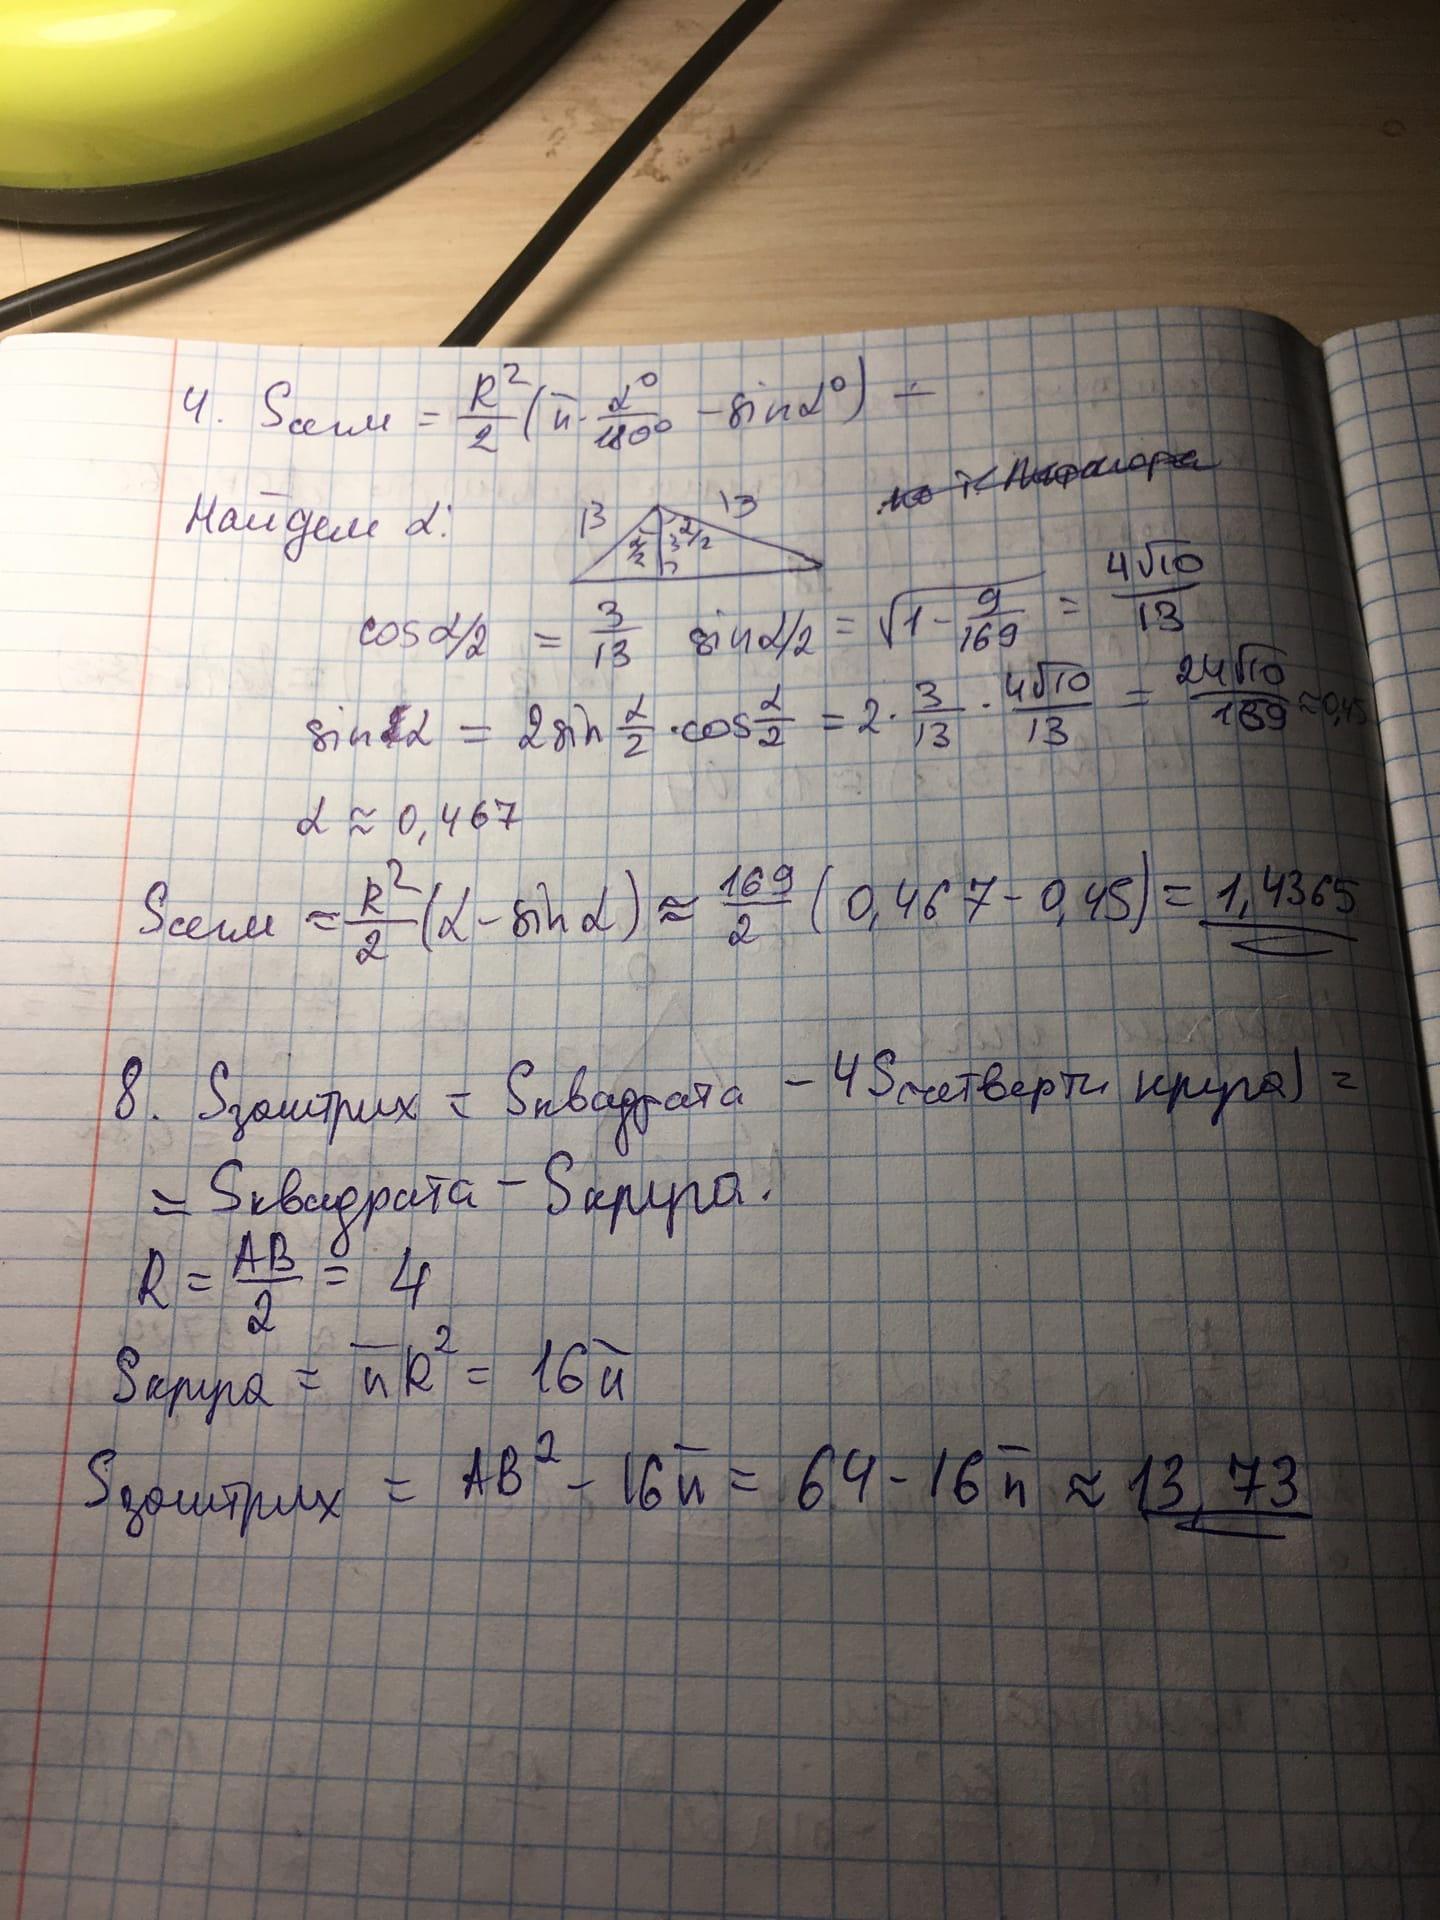 4. Sсегм = R²/2 (π · α°/180° - sin α°) =
Найдем α: 13 13 α/2 3 α/2
cos α/2 = 3/13 sin α/2 = √(1 - 9/169) = 4√10/13
sin α = 2 sin α/2 · cos α/2 = 2 · 3/13 · 4√10/13 = 24√10/169 ≈ 0,45
α ≈ 0,467
Sсегм = R²/2 (α - sin α) ≈ 169/2 (0,467 - 0,45) = 1,4365
8. Sзаштрих = Sквадрата - 4S(четверти круга) =
= Sквадрата - Sкруга.
R = AB/2 = 4
Sкруга = πR² = 16π
Sзаштрих = AB² - 16π = 64 - 16π ≈ 13,73